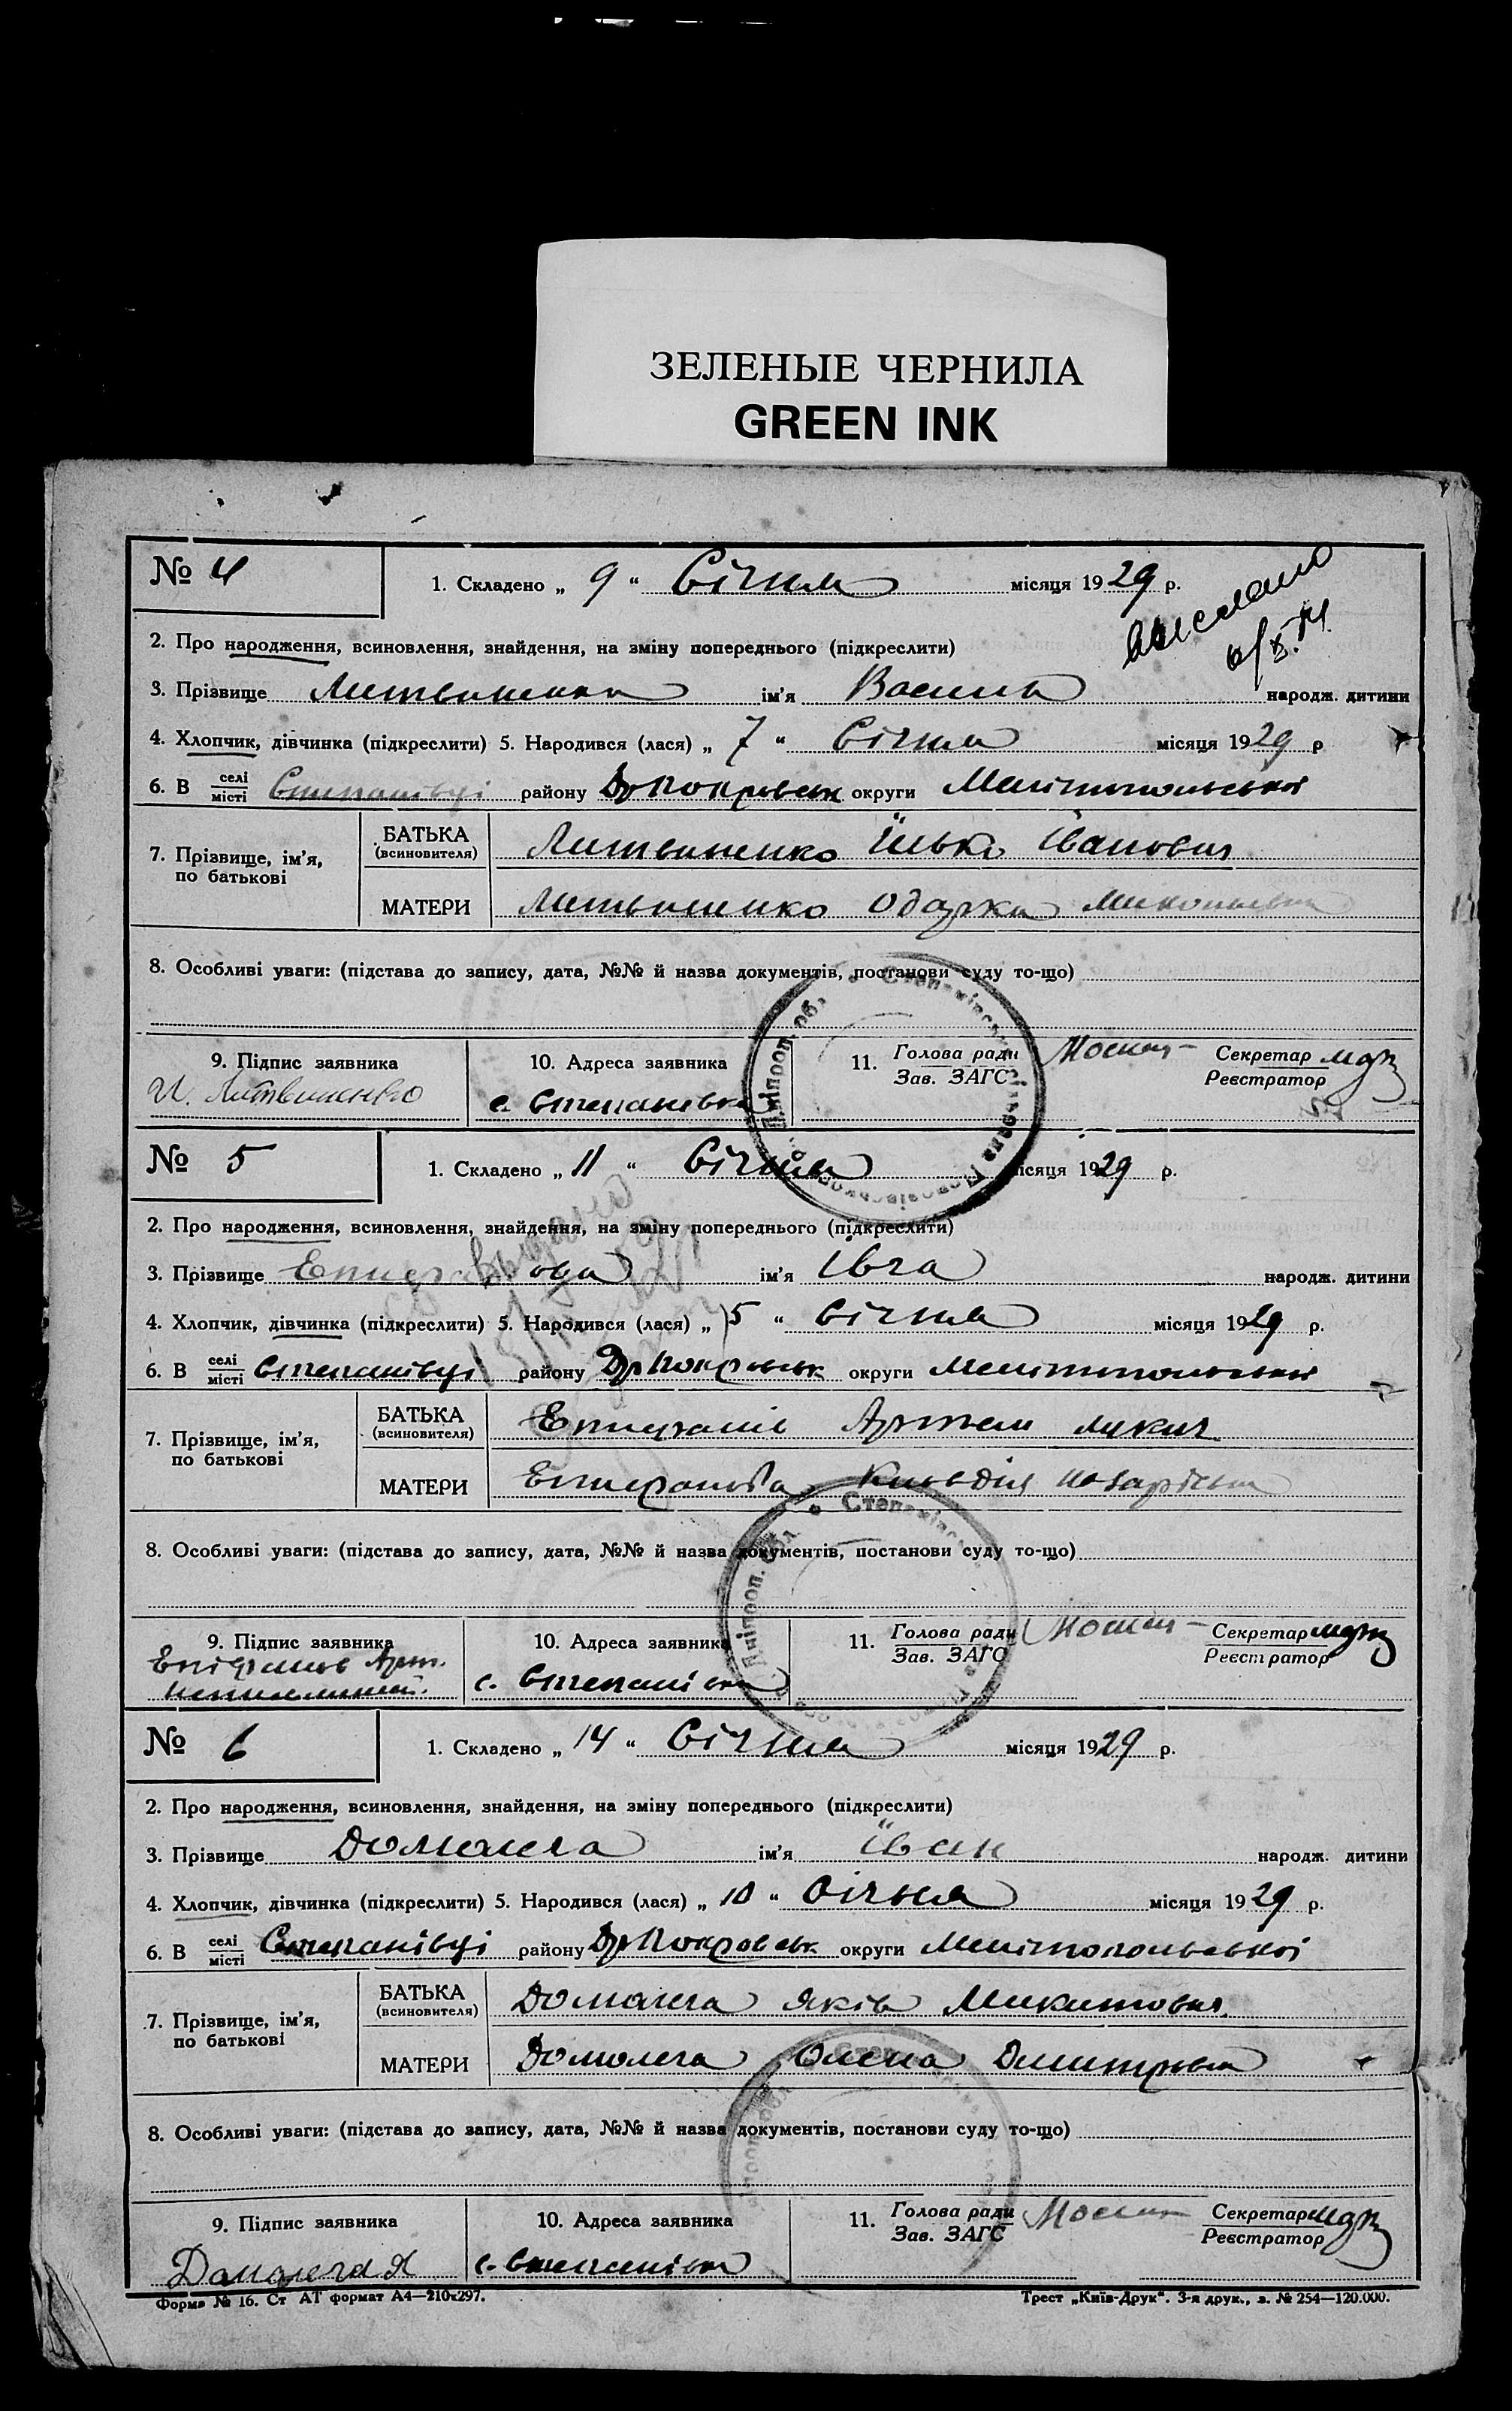 ЗЕЛЕНЫЕ ЧЕРНИЛА
GREEN INK
№ 4
1. Складено „ 9 “ Січня місяця 1929 р.
выслано
2. Про народження, всиновлення, знайдення, на зміну попереднього (підкреслити)
3. Прізвище Литвиненко ім'я Василь народж. дитини
4. Хлопчик, дівчинка (підкреслити) 5. Народився (лася) „ 7 “ Січня місяця 1929 р
6. В селі/місті Степанівці району Др Покровськ округи Мелітопольської
7. Прізвище, ім'я, по батькові
БАТЬКА (всиновителя) Литвиненко Ілько Іванович
МАТЕРИ Литвиненко Одарка Миколаївна
8. Особливі уваги: (підстава до запису, дата, №№ й назва документів, постанови суду то-що)
9. Підпис заявника И. Литвиненко
10. Адреса заявника с. Степанівка
11. Голова ради Зав. ЗАГС
Секретар Реєстратор
№ 5
1. Складено „ 11 “ Січня місяця 1929 р.
2. Про народження, всиновлення, знайдення, на зміну попереднього (підкреслити)
3. Прізвище Епифанова ім'я Івга народж. дитини
4. Хлопчик, дівчинка (підкреслити) 5. Народився (лася) „ 5 “ Січня місяця 1929 р.
6. В селі/місті Степанівці району Др Покровськ округи Мелітопольської
7. Прізвище, ім'я, по батькові
БАТЬКА (всиновителя) Епифанів Артем Лукич
МАТЕРИ Епифанова Клавдія Назарівна
8. Особливі уваги: (підстава до запису, дата, №№ й назва документів, постанови суду то-що)
9. Підпис заявника Епіфанов Арт.
10. Адреса заявника с. Степанівка
11. Голова ради Зав. ЗАГС
Секретар Реєстратор
№ 6
1. Складено „ 14 “ Січня місяця 1929 р.
2. Про народження, всиновлення, знайдення, на зміну попереднього (підкреслити)
3. Прізвище Домалега ім'я Іван народж. дитини
4. Хлопчик, дівчинка (підкреслити) 5. Народився (лася) „ 10 “ Січня місяця 1929 р.
6. В селі/місті Степанівці району Др Покровськ округи Мелітопольської
7. Прізвище, ім'я, по батькові
БАТЬКА (всиновителя) Домалега Яків Микитович
МАТЕРИ Домалега Олена Дмитрівна
8. Особливі уваги: (підстава до запису, дата, №№ й назва документів, постанови суду то-що)
9. Підпис заявника Домалега Я
10. Адреса заявника с. Степанівка
11. Голова ради Зав. ЗАГС
Секретар Реєстратор
Форма № 16. Ст АТ формат А4—210x297.
Трест „Київ-Друк“. 3-я друк., з. № 254—120.000.